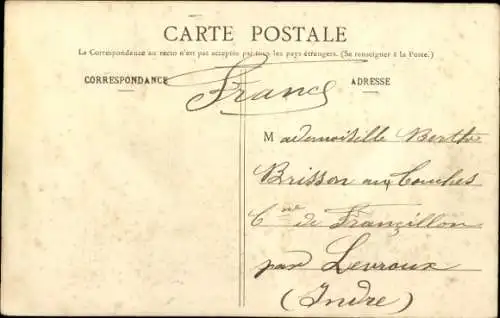 CARTE POSTALE
La Correspondance au recto n'est pas acceptée par tous les pays étrangers. (Se renseigner à la Poste.)
CORRESPONDANCE
France
ADRESSE
Mademoiselle Berthe
Brisson aux Couches
Cne de Francillon
par Levroux
(Indre)